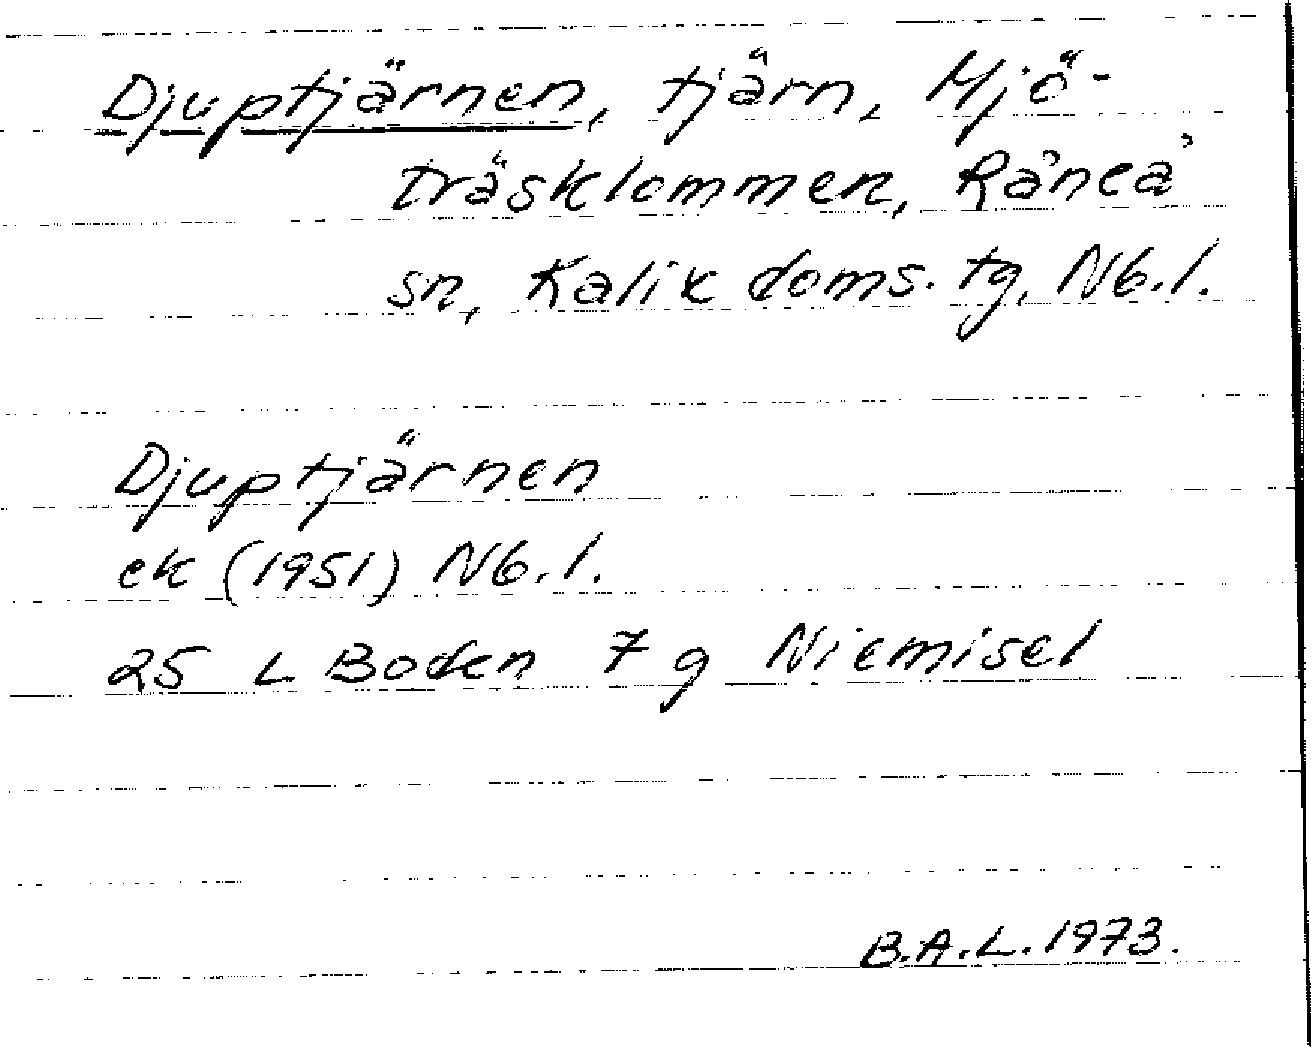 Djuptjärnen, tjärn, Mjö-
träsklommen, Råneå
sn, Kalix doms. tg, Nb.l.
Djuptjärnen
ek (1951) Nb.l.
25 L Boden 7 g Niemisel
B.A.L. 1973.